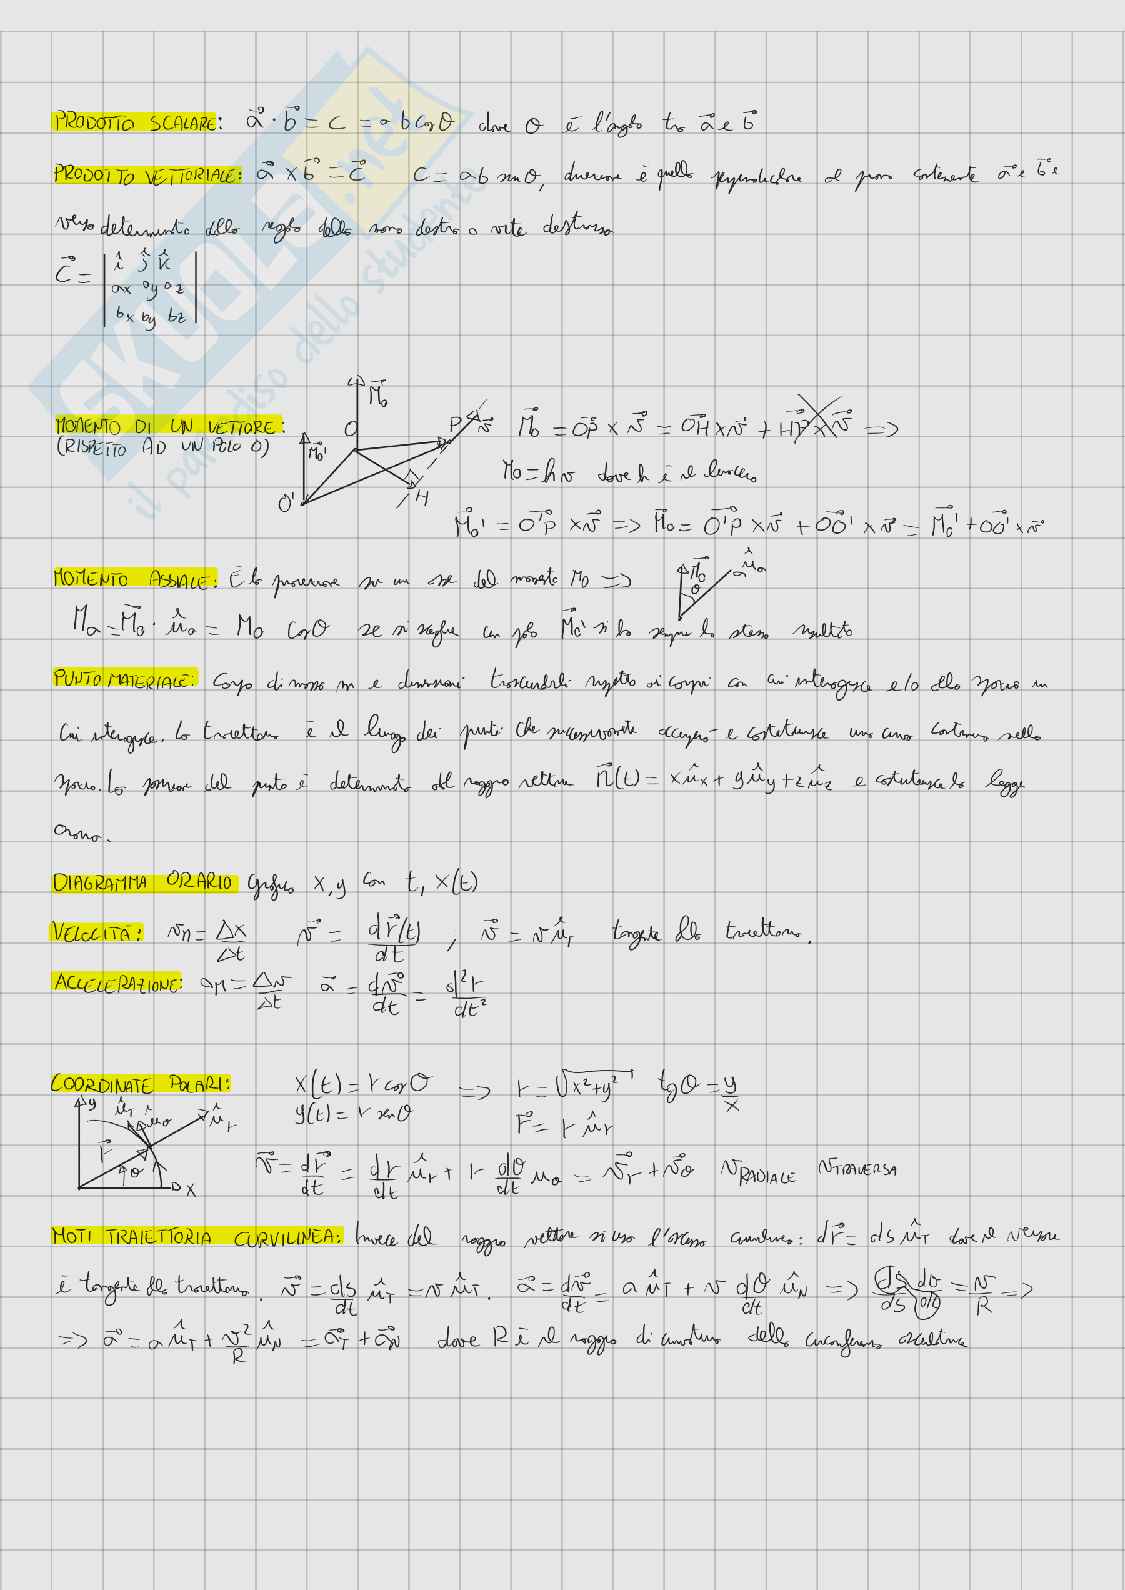 PRODOTTO SCALARE: a⃗ · b⃗ = c = a b cos θ dove θ è l'angolo tra a⃗ e b⃗
PRODOTTO VETTORIALE: a⃗ × b⃗ = c⃗ C = ab sen θ, direzione è quella perpendicolare al piano contenente a⃗ e b⃗ e
verso determinato dalla regola della mano destra o vite destrorsa
C⃗ = | î ĵ k̂
ax ay az
bx by bz |
SKUOLA.net
il paradiso dello studente
MOMENTO DI UN VETTORE:
(RISPETTO AD UN POLO O)
M⃗o O P v⃗ M⃗o' O' H
M⃗o = OP⃗ × v⃗ = OH⃗ × v⃗ + HP⃗ × v⃗ =>
Mo = h v dove h è il braccio
M⃗o' = O'P⃗ × v⃗ => M⃗o = O'P⃗ × v⃗ + OO'⃗ × v⃗ = M⃗o' + OO'⃗ × v⃗
MOMENTO ASSIALE: È la proiezione su un asse del momento Mo => M⃗o θ ûa
Ma = M⃗o · ûa = Mo cos θ se si sceglie un polo M⃗o' si ha sempre lo stesso risultato
PUNTO MATERIALE: Corpo di massa m e dimensioni trascurabili rispetto ai corpi con cui interagisce e/o allo spazio in
cui interagisce. La traiettoria è il luogo dei punti che successivamente occupa e costituisce una curva continua nello
spazio. La posizione del punto è determinata dal raggio vettore r⃗(t) = xûx + yûy + zûz e costituisce la legge
oraria.
DIAGRAMMA ORARIO Grafico x, y con t, x(t)
VELOCITÀ: vm = Δx/Δt v⃗ = dr⃗(t)/dt , v⃗ = v ûT tangente alla traiettoria.
ACCELERAZIONE: am = Δv/Δt a⃗ = dv⃗/dt = d²r/dt²
COORDINATE POLARI: x(t) = r cos θ => r = √x²+y² tg θ = y/x
y(t) = r sen θ r⃗ = r ûr
y ûT ûθ ûr r⃗ θ x
v⃗ = dr⃗/dt = dr/dt ûr + r dθ/dt uθ = v⃗r + v⃗θ vRADIALE vTRAVERSA
MOTI TRAIETTORIA CURVILINEA: Invece del raggio vettore si usa l'ascissa curvilinea: dr⃗ = ds ûT dove il versore
è tangente alla traiettoria. v⃗ = ds/dt ûT = v ûT. a⃗ = dv⃗/dt = a ûT + v dθ/dt ûN => ds/ds dθ/dt = v/R =>
=> a⃗ = a ûT + v²/R ûN = a⃗T + a⃗N dove R è il raggio di curvatura della circonferenza osculatrice